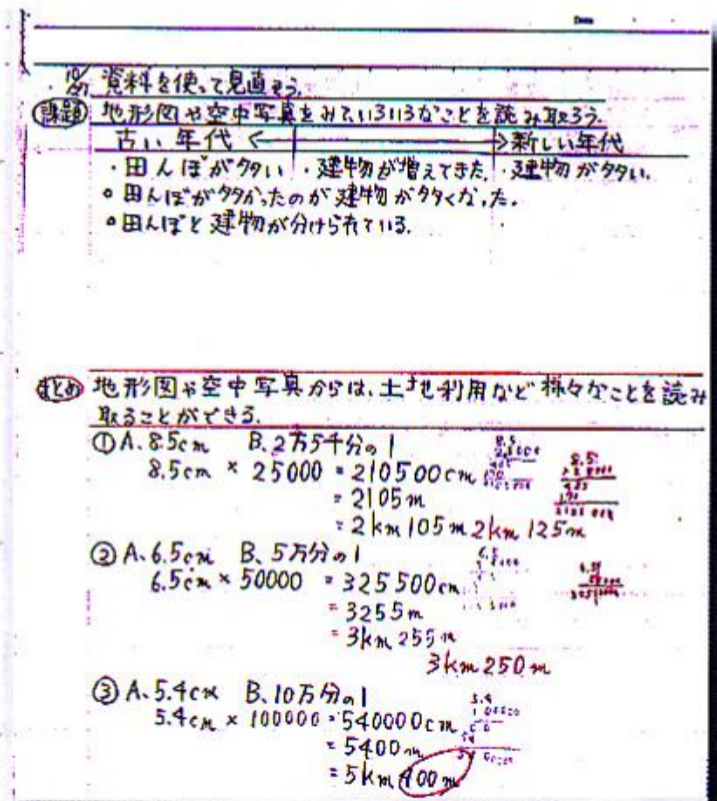 Date
資料を使って見直そう。
課題 地形図や空中写真をみていろいろなことを読み取ろう。
古い年代 ← → 新しい年代
・田んぼが多い ・建物が増えてきた。 ・建物が多い。
○田んぼが多かったのが建物が多くなった。
○田んぼと建物が分けられている。
まとめ 地形図や空中写真からは、土地利用など様々なことを読み
取ることができる。
① A、8.5cm B、2万5千分の1
8.5cm × 25000 = 210500cm
= 2105m
= 2km 105m 2km 125m
② A、6.5cm B、5万分の1
6.5cm × 50000 = 325500cm
= 3255m
= 3km 255m
3km 250m
③ A、5.4cm B、10万分の1
5.4cm × 100000 = 540000cm
= 5400m
= 5km 400m